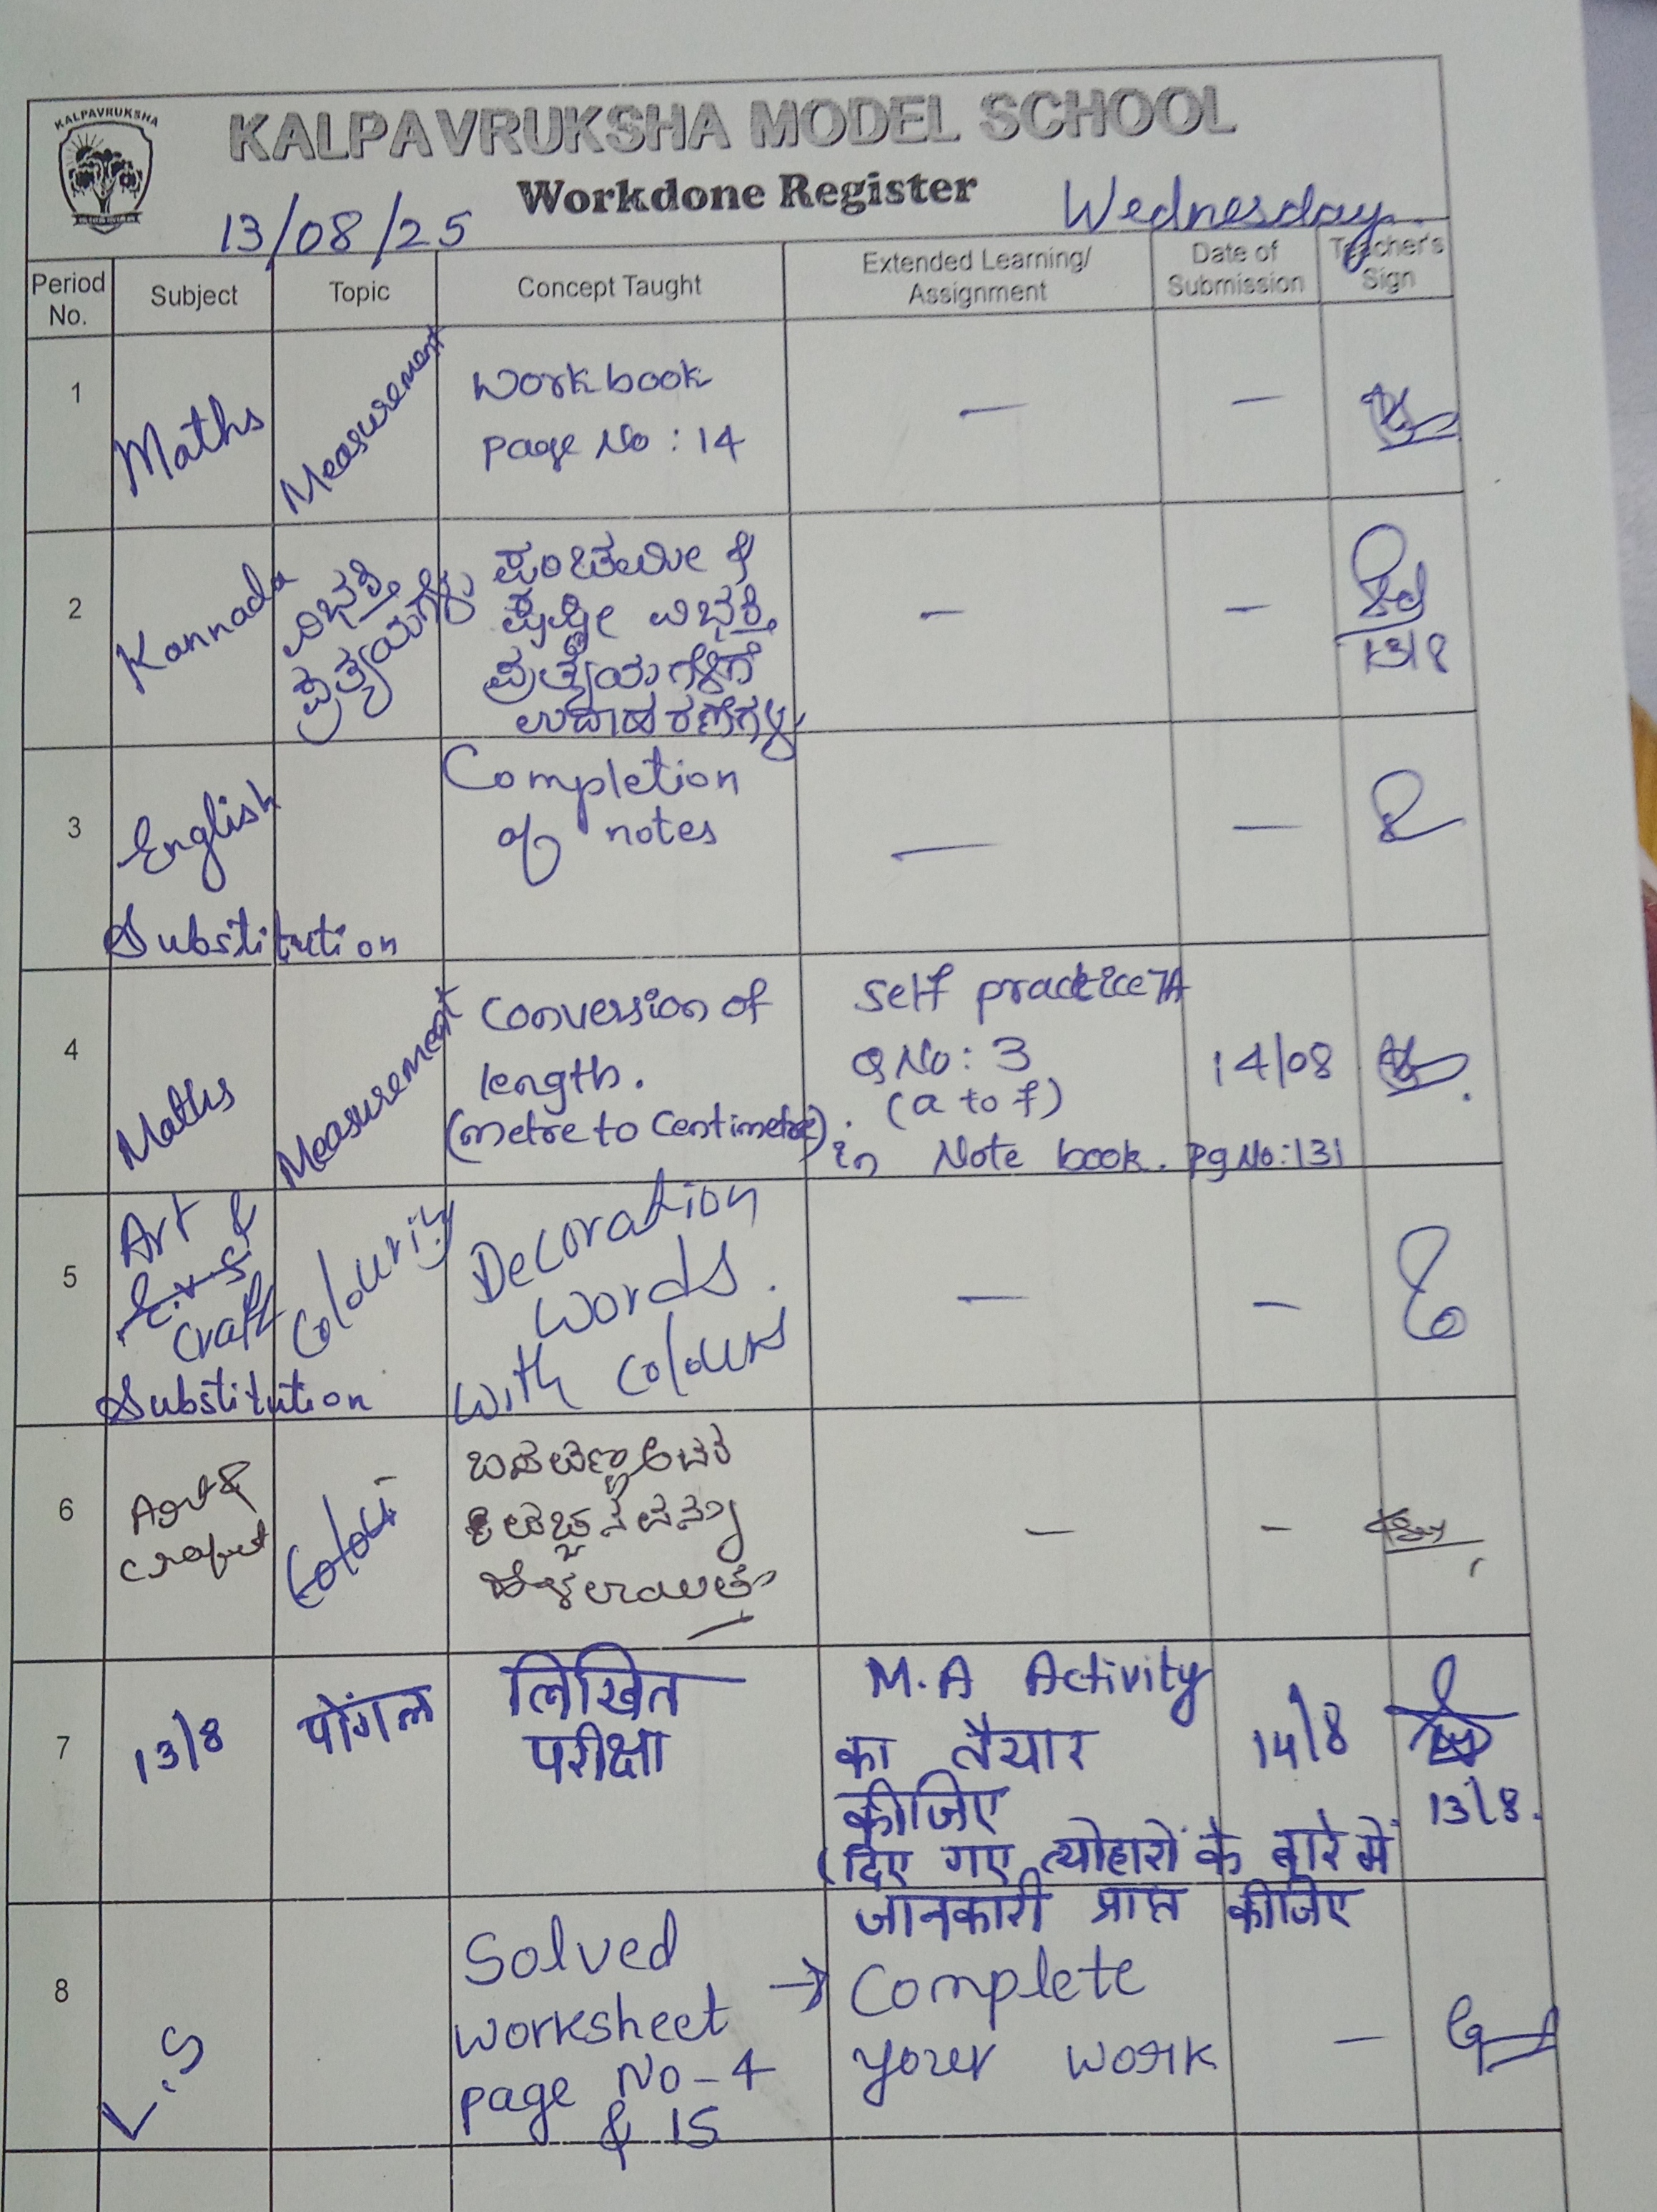 KALPAVRUKSHA
KALPAVRUKSHA MODEL SCHOOL
Workdone Register
13/08/25
Wednesday
Period No.
Subject
Topic
Concept Taught
Extended Learning/
Assignment
Date of
Submission
Teacher's
Sign
1
Maths
Measurement
Work book
page No : 14
—
—
2
Kannada
ವಿಭಕ್ತಿ
ಪ್ರತ್ಯಯಗಳು
ಪಂಚಮೀ &
ಷಷ್ಠೀ ವಿಭಕ್ತಿ
ಪ್ರತ್ಯಯಗಳಿಗೆ
ಉದಾಹರಣೆಗಳು
—
—
13/8
3
English
Substitution
Completion
of notes
—
—
4
Maths
Measurement
Conversion of
length.
(metre to Centimetre).
Self practice 7A
Q No : 3
(a to f)
in Note book. pg No:131
14/08
5
Art &
Craft
Substitution
Colouring
Decoration
words.
with colours
—
—
6
Colour
—
—
7
13/8
पोंगल
लिखित
परीक्षा
M.A Activity
का तैयार
कीजिए
(दिए गए त्योहारों के बारे में
जानकारी प्राप्त कीजिए
14/8
13/8.
8
L.S
Solved
worksheet
page No - 4
& 15
→ Complete
your work
—